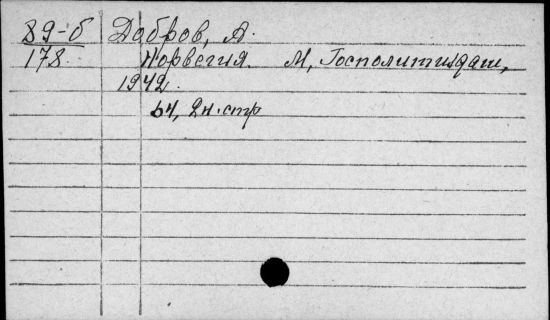 89-б Дабров, А.
178 Норвегия. М, Госполитиздат,
1942.
64, 2н. стр